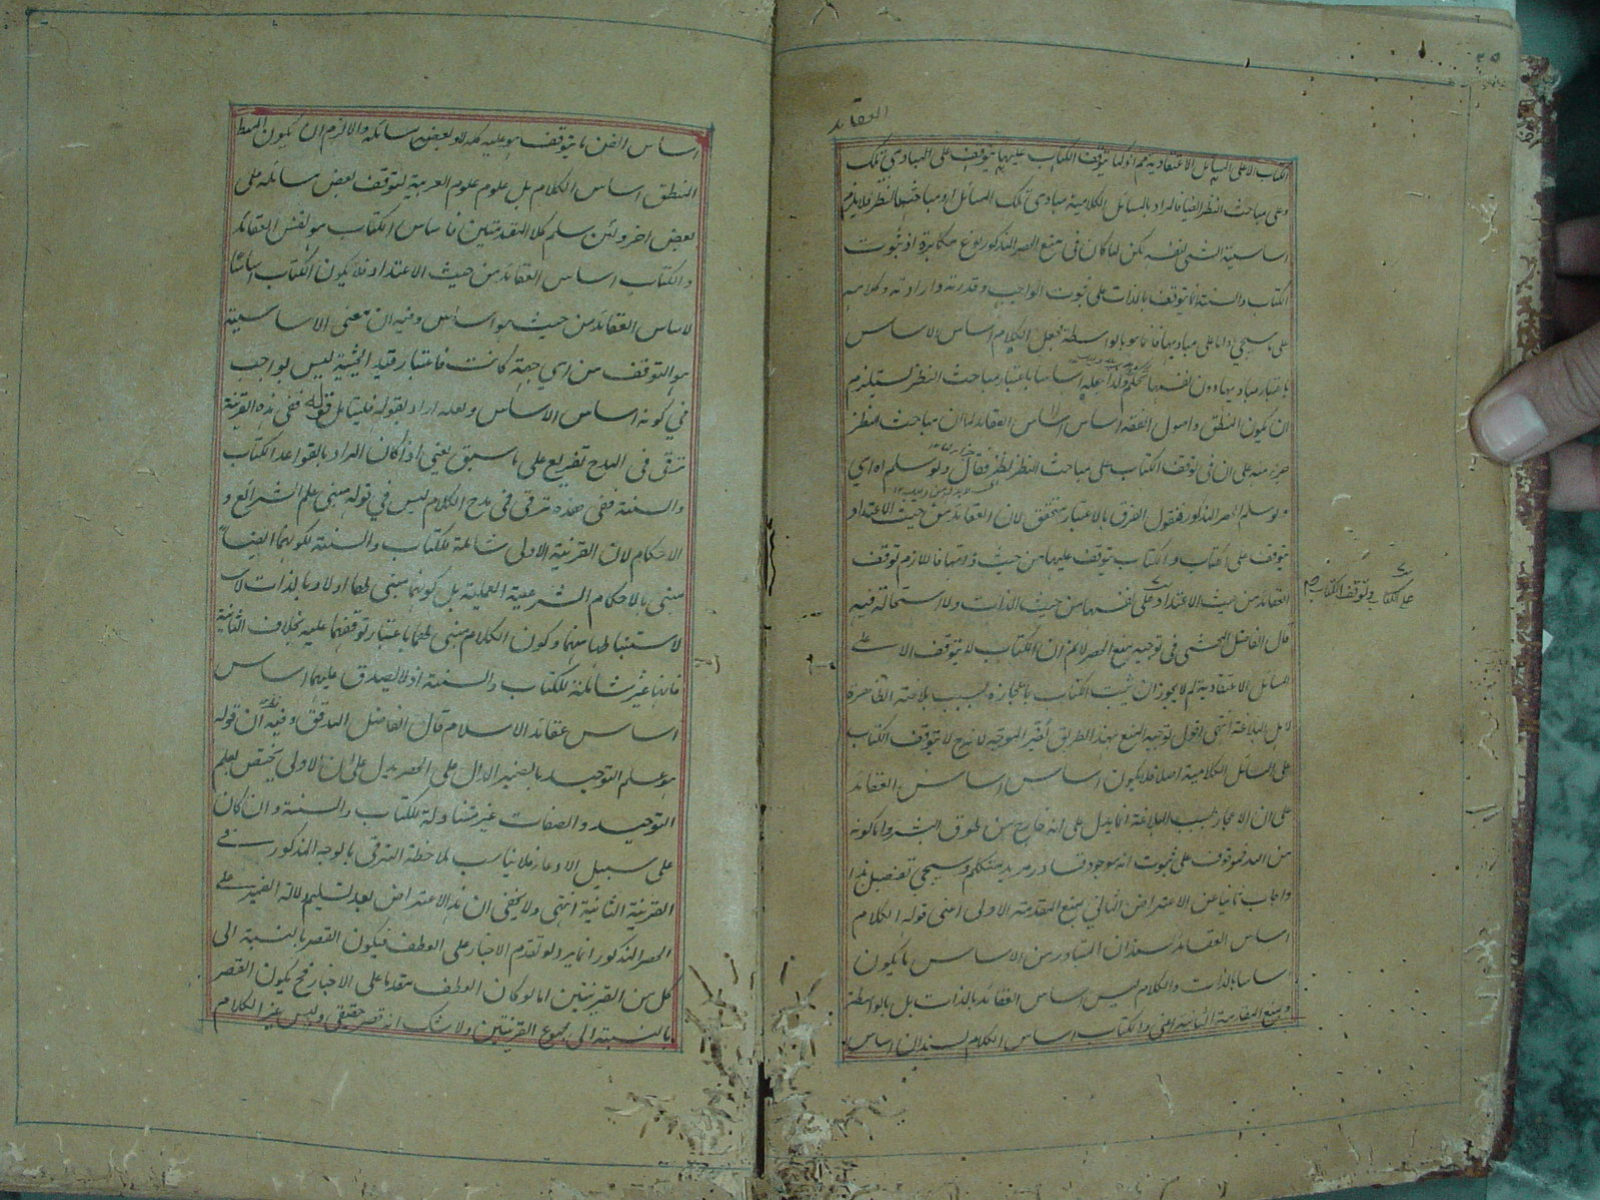 العقائد
الكتاب الا على المسائل الاعتقادية مم اذ كما يتوقف الكتاب عليها يتوقف على المبادي تلك
وعلى مباحث النظر ايضا فالمراد بالمسائل الكلامية مبادي تلك المسائل او مباحث النظر فلا يلزم
اساسية الشئ لنفسه لكن لما كان في منع الحصر المذكور نوع مكابرة اذ ثبوت
الكتاب والسنة انما يتوقف بالذات على ثبوت الواجب وقدرته وارادته وكلامه
على ما سيجئ واما على مباديها فانما هو بالواسطة فجعل الكلام اساس الاساس
باعتبار مباديها دون نفسها تحكم ولذا عليه اساسا باعتبار مباحث النظر يستلزم
ان يكون المنطق واصول الفقه اساس اساس العقائد لما ان مباحث النظر
جزء منه على ان في توقف الكتاب على مباحث النظر نظر فقال ولو سلم اه اي
ولو سلم الحصر المذكور فنقول الفرق بالاعتبار متحقق لان العقائد من حيث الاعتداد
يتوقف على الكتاب والكتاب يتوقف عليها من حيث ذواتها فاللازم توقف
العقائد من حيث الاعتداد على نفسها من حيث الذات ولا استحالة فيه
على الكتاب وتوقف الكتاب صح
قال الفاضل المحشي في توجيه منع الحصر لا نم ان الكتاب لا يتوقف الا على
المسائل الاعتقادية لم لا يجوز ان يثبت الكتاب باعجازه بحسب بلاغته الظاهرة
لاهل البلاغة انتهى اقول توجيه المنع بهذا الطريق غير الموجه لانه ح لا يتوقف الكتاب
على المسائل الكلامية اصلا فلا يكون اساس اساس العقائد
على ان الاعجاز بحسب البلاغة انما يدل على انه خارج من طوق البشر واما كونه
من الله فموقوف على ثبوت انه موجود قادر مريد متكلم وسيجئ تفصيل هذا
واجاب ثانيا عن الاعتراض الثاني بمنع المقدمة الاولى اعني قوله الكلام
اساس العقائد بسند ان المتبادر من الاساس ما يكون
اساسا بالذات والكلام ليس اساس العقائد بالذات بل بالواسطة
وبمنع المقدمة الثانية اعني والكتاب اساس الكلام بسند ان اساس
اساس الفن ما يتوقف هو عليه كله لا بعض مسائله والا لزم ان يكون المنط
المنطق اساس الكلام بل علوم علوم العربية لتوقف بعض مسائله على
بعض اخر ولئن سلم كلا المقدمتين فاساس الكتاب هو نفس العقائد
والكتاب اساس العقائد من حيث الاعتداد فلا يكون الكتاب اساسا
لاساس العقائد من حيث هو اساس وفيه ان معنى الاساسية
هو التوقف من اي جهة كانت فاعتبار قيد الحيثية ليس بواجب
في كونه اساس الاساس ولعله اراد بقوله فليتأمل قوله ففي هذه القرينة
ترقى في المدح تفريع على ما سبق يعني اذا كان المراد بالقواعد الكتاب
والسنة ففي هذه ترقى في مدح الكلام ليس في قوله مبنى علم الشرائع و
الاحكام لان القرينة الاولى شاملة للكتاب والسنة لكونهما ايضا
مبنى بالاحكام الشرعية العملية بل كونهما مبنى لها اولا وبالذات لا
لاستنباطها منهما وكون الكلام مبنى لها باعتبار توقفهما عليه بخلاف الثانية
فانها غير شاملة للكتاب والسنة اذ لا يصدق عليهما اساس
اساس عقائد الاسلام قال الفاضل المدقق وفيه ان قوله
هو علم التوحيد بالضمير الدال على الحصر يدل على ان الاولى يختص بعلم
التوحيد والصفات غير متناولة للكتاب والسنة وان كان
على سبيل الادعاء فلا يناسب ملاحظة الترقي بالوجه المذكور في
القرينة الثانية انتهى ولا يخفى ان هذا الاعتراض بعد تسليم دلالة الضمير على
الحصر المذكور انما يرد لو تقدم الاخبار على العطف فيكون القصر بالنسبة الى
كل من القرينتين اما لو كان العطف مقدما على الاخبار فح يكون القصر
بالنسبة الى مجموع القرينتين ولا شك انه قصر حقيقي وليس غير الكلام